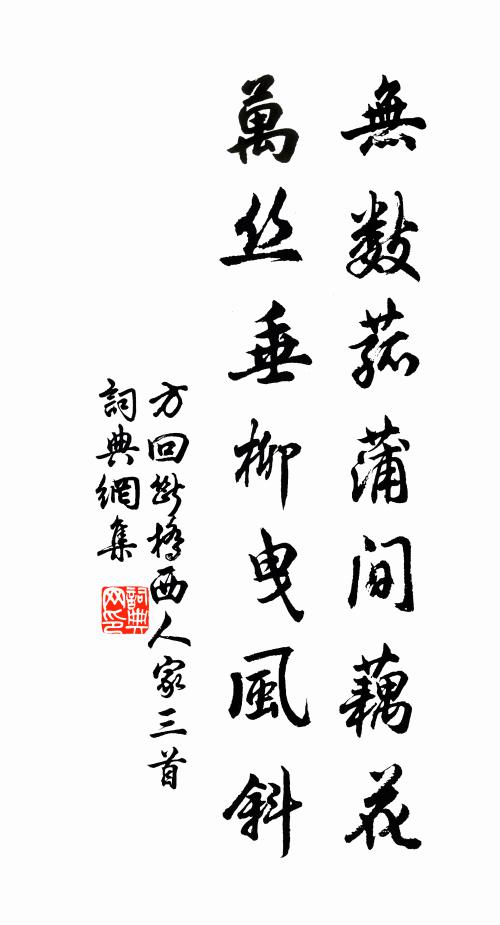 無數菰蒲間藕花
萬丝垂柳曳風斜
方回断橋西人家三首
詞典網集
詞典
网印